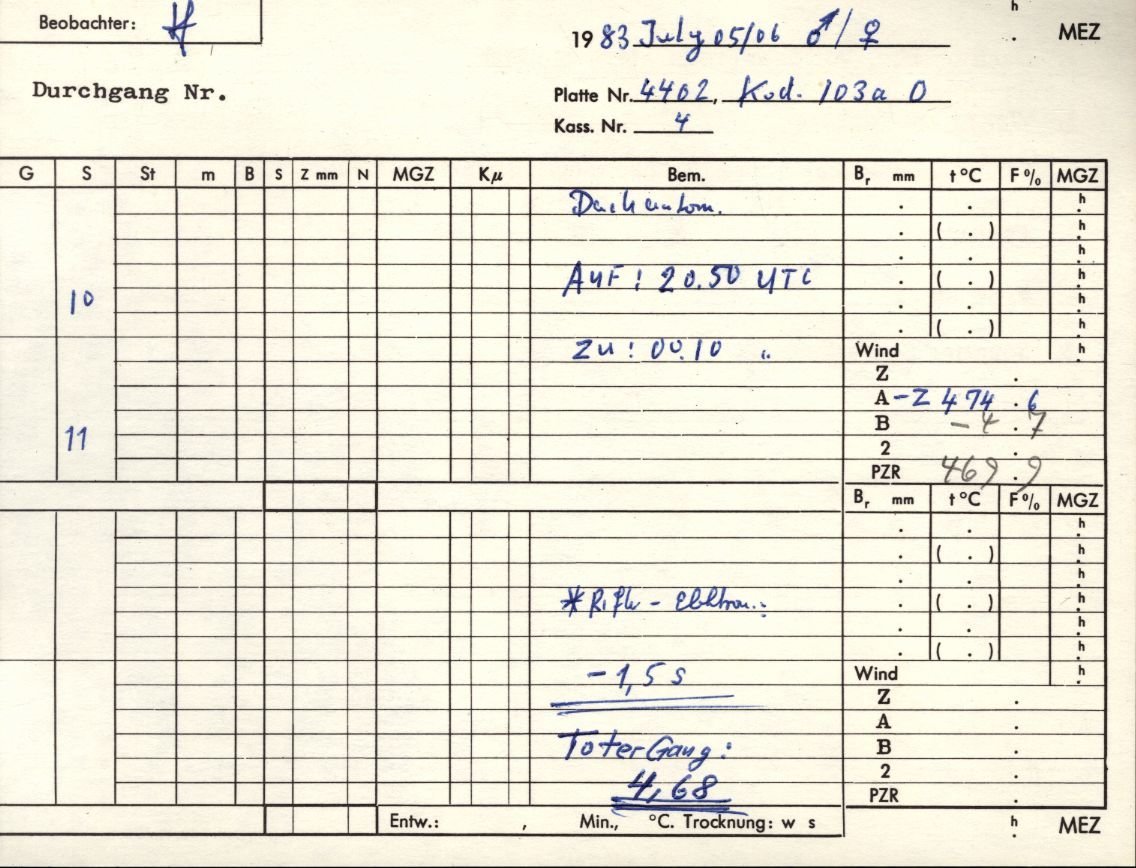 h
Beobachter:
19 83 July 05/06 ♂/♀ . MEZ
Durchgang Nr.
Platte Nr. 4402, Kod. 103a O
Kass. Nr. 4
G S St m B S Z mm N MGZ Kμ Bem. Br mm t °C F% MGZ
. . h
. ( . ) h
. . h
Auf: 20.50 UTC . ( . ) h
10 . . h
. ( . ) h
Zu: 00.10 " Wind h
Z .
A -Z 474.6
B -4.7
11 2 .
PZR 469.9
Br mm t °C F% MGZ
. . h
. ( . ) h
. . h
* . ( . ) h
. . h
. ( . ) h
-1,5 s Wind h
Z .
A .
Toter Gang: B .
4,68 2 .
PZR .
Entw.: , Min., °C. Trocknung: w s h . MEZ